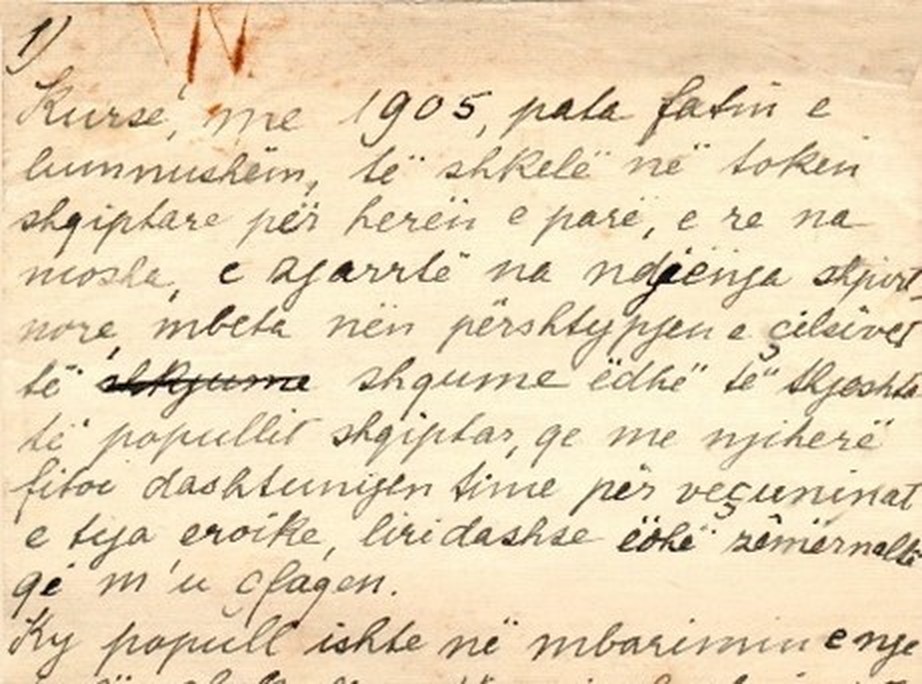 1)
Kursé, me 1905, pata fatin e
lumnushëm, të shkelë në tokën
shqiptare për herën e parë, e re na
mosha, e zgarrtë na ndjenja shpirt
nore, mbeta nën përshtypjen e cilsivet
të shkjume shqume ëdhë të thjeshta
të popullit shqiptar, qe me njiherë
fitoi dashtunijen time për veçuninat
e tija eroike, liridashse ëdhë zêmërnalta
që m'u çfaqen.
Ky popull ishte në mbarimin e nje